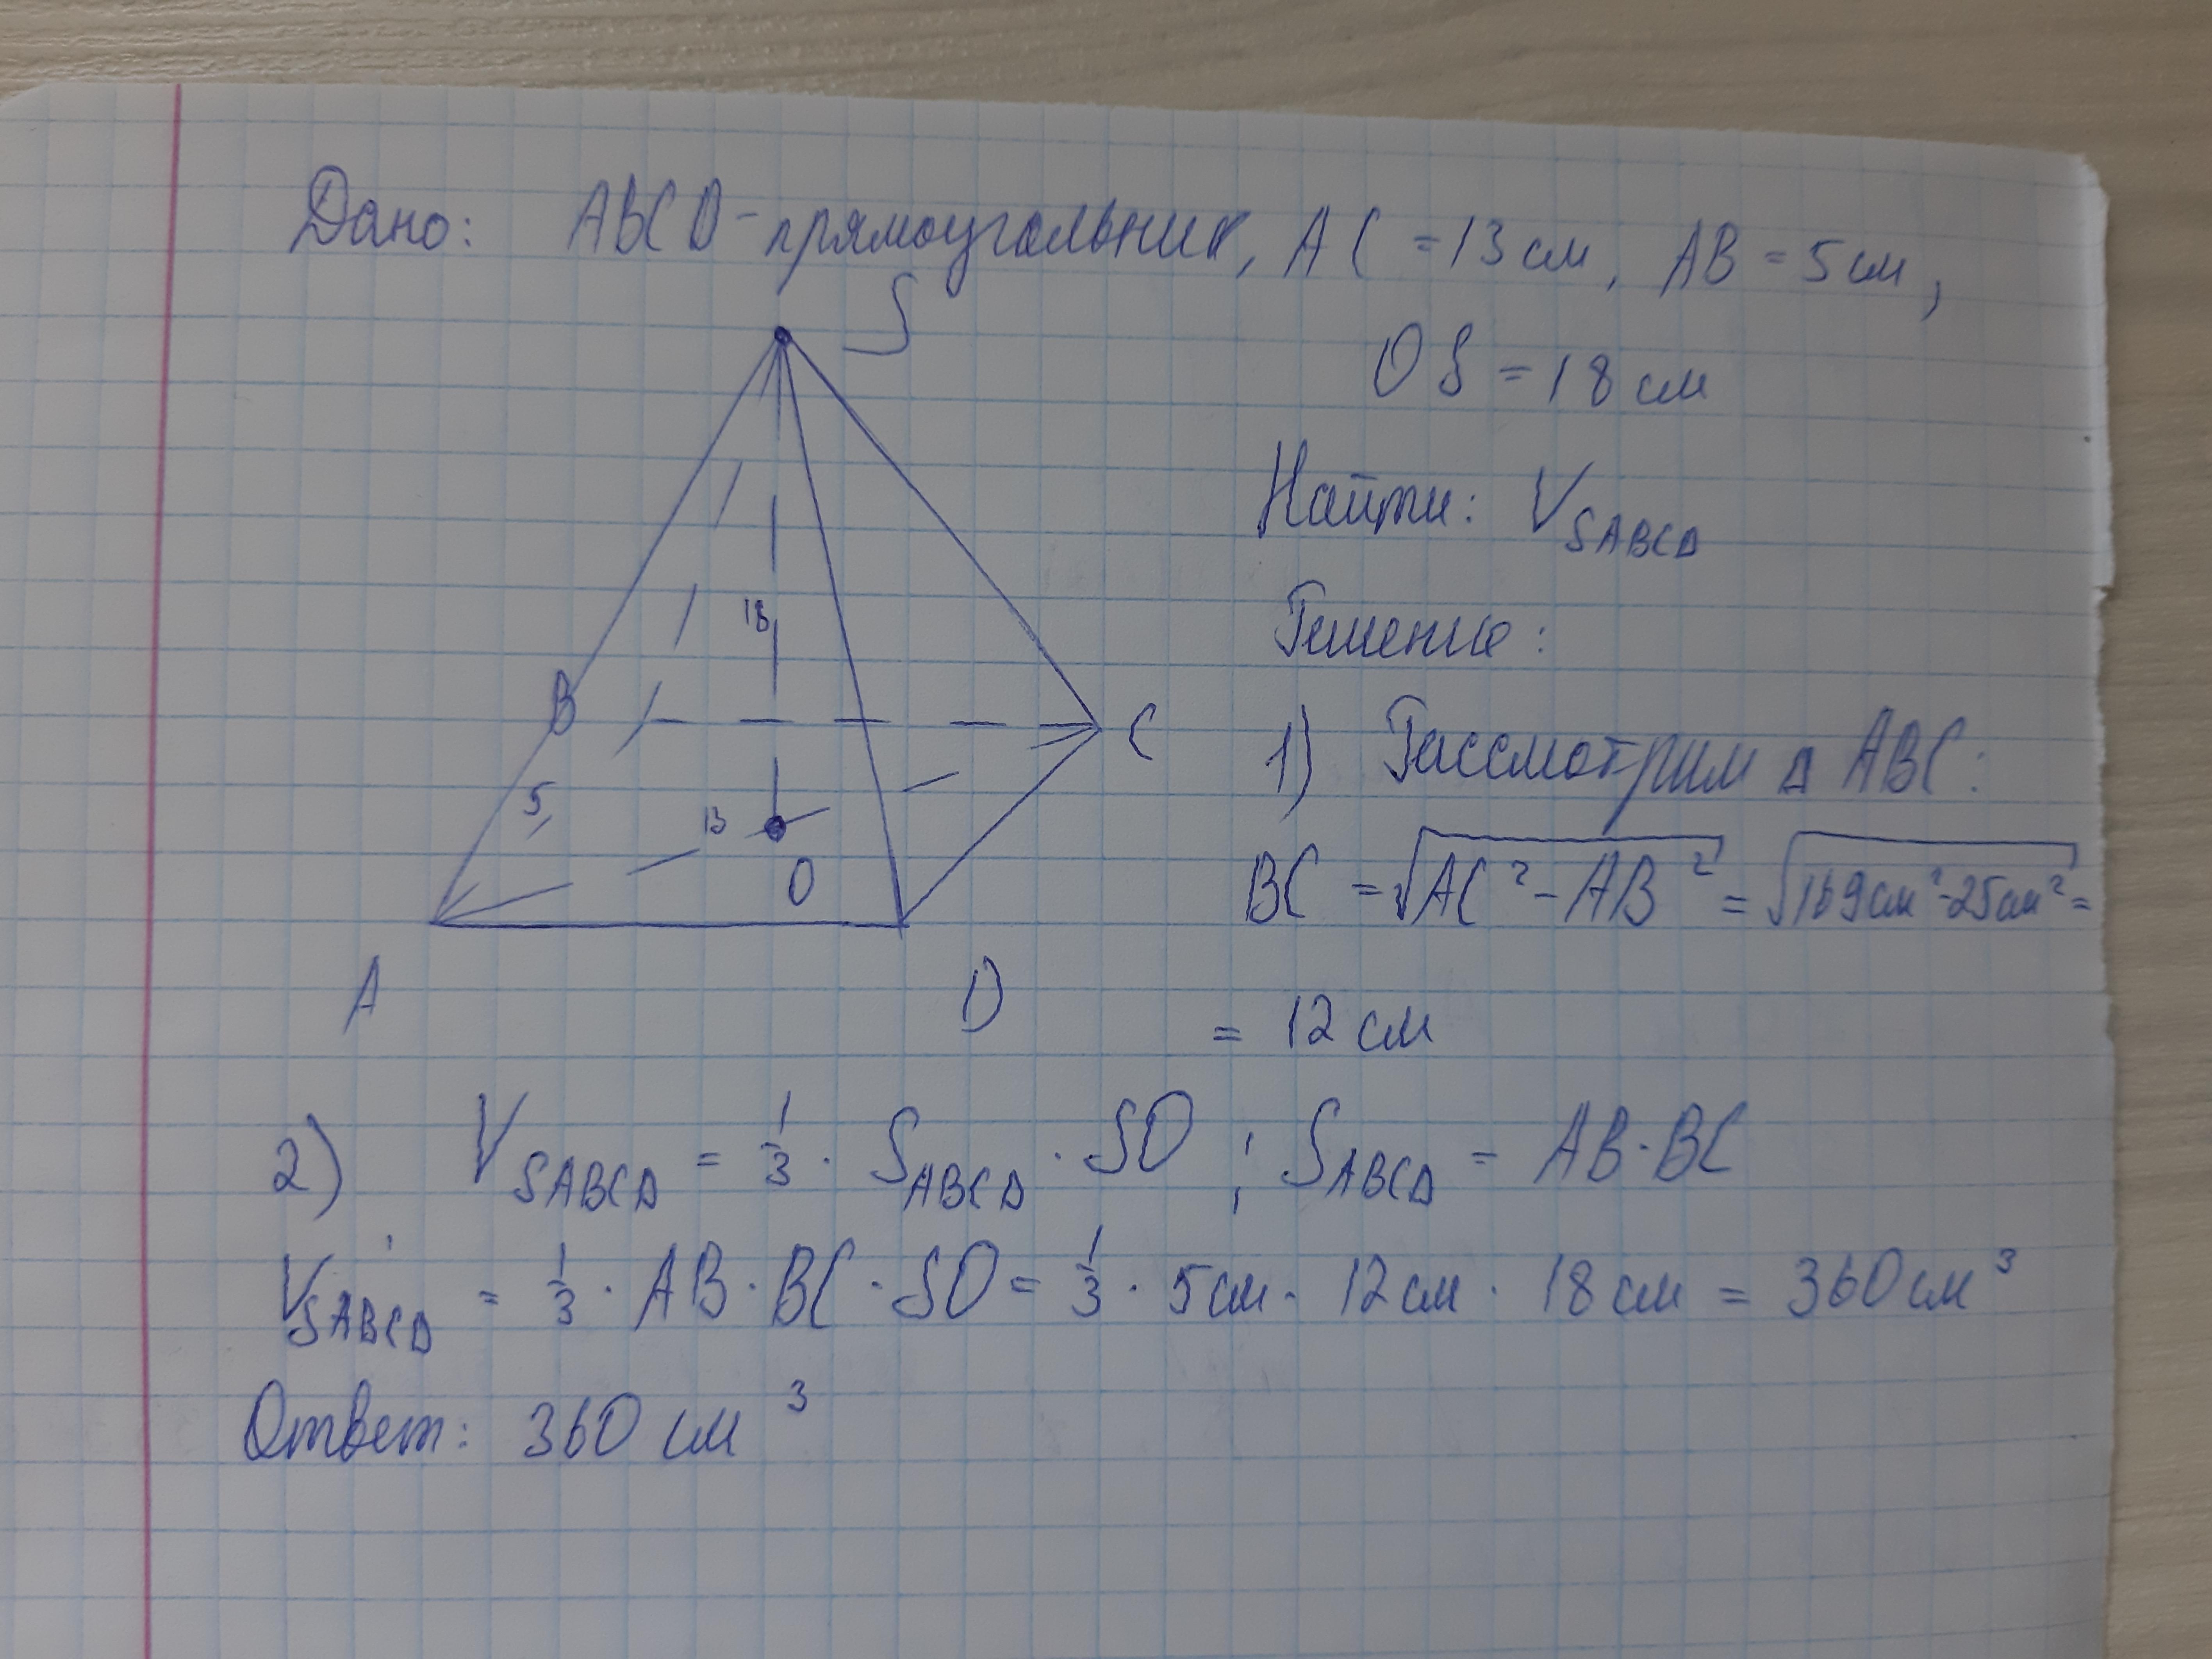 Дано: ABCD - прямоугольник, AC = 13 см, AB = 5 см,
S
OS = 18 см
Найти: V_SABCD
18
Решение:
B
C
1) Рассмотрим Δ ABC:
5
13
O
BC = √(AC² - AB²) = √(169 см² - 25 см²) =
A
D
= 12 см
2) V_SABCD = 1/3 · S_ABCD · SO ; S_ABCD = AB · BC
V_SABCD = 1/3 · AB · BC · SO = 1/3 · 5 см · 12 см · 18 см = 360 см³
Ответ: 360 см³